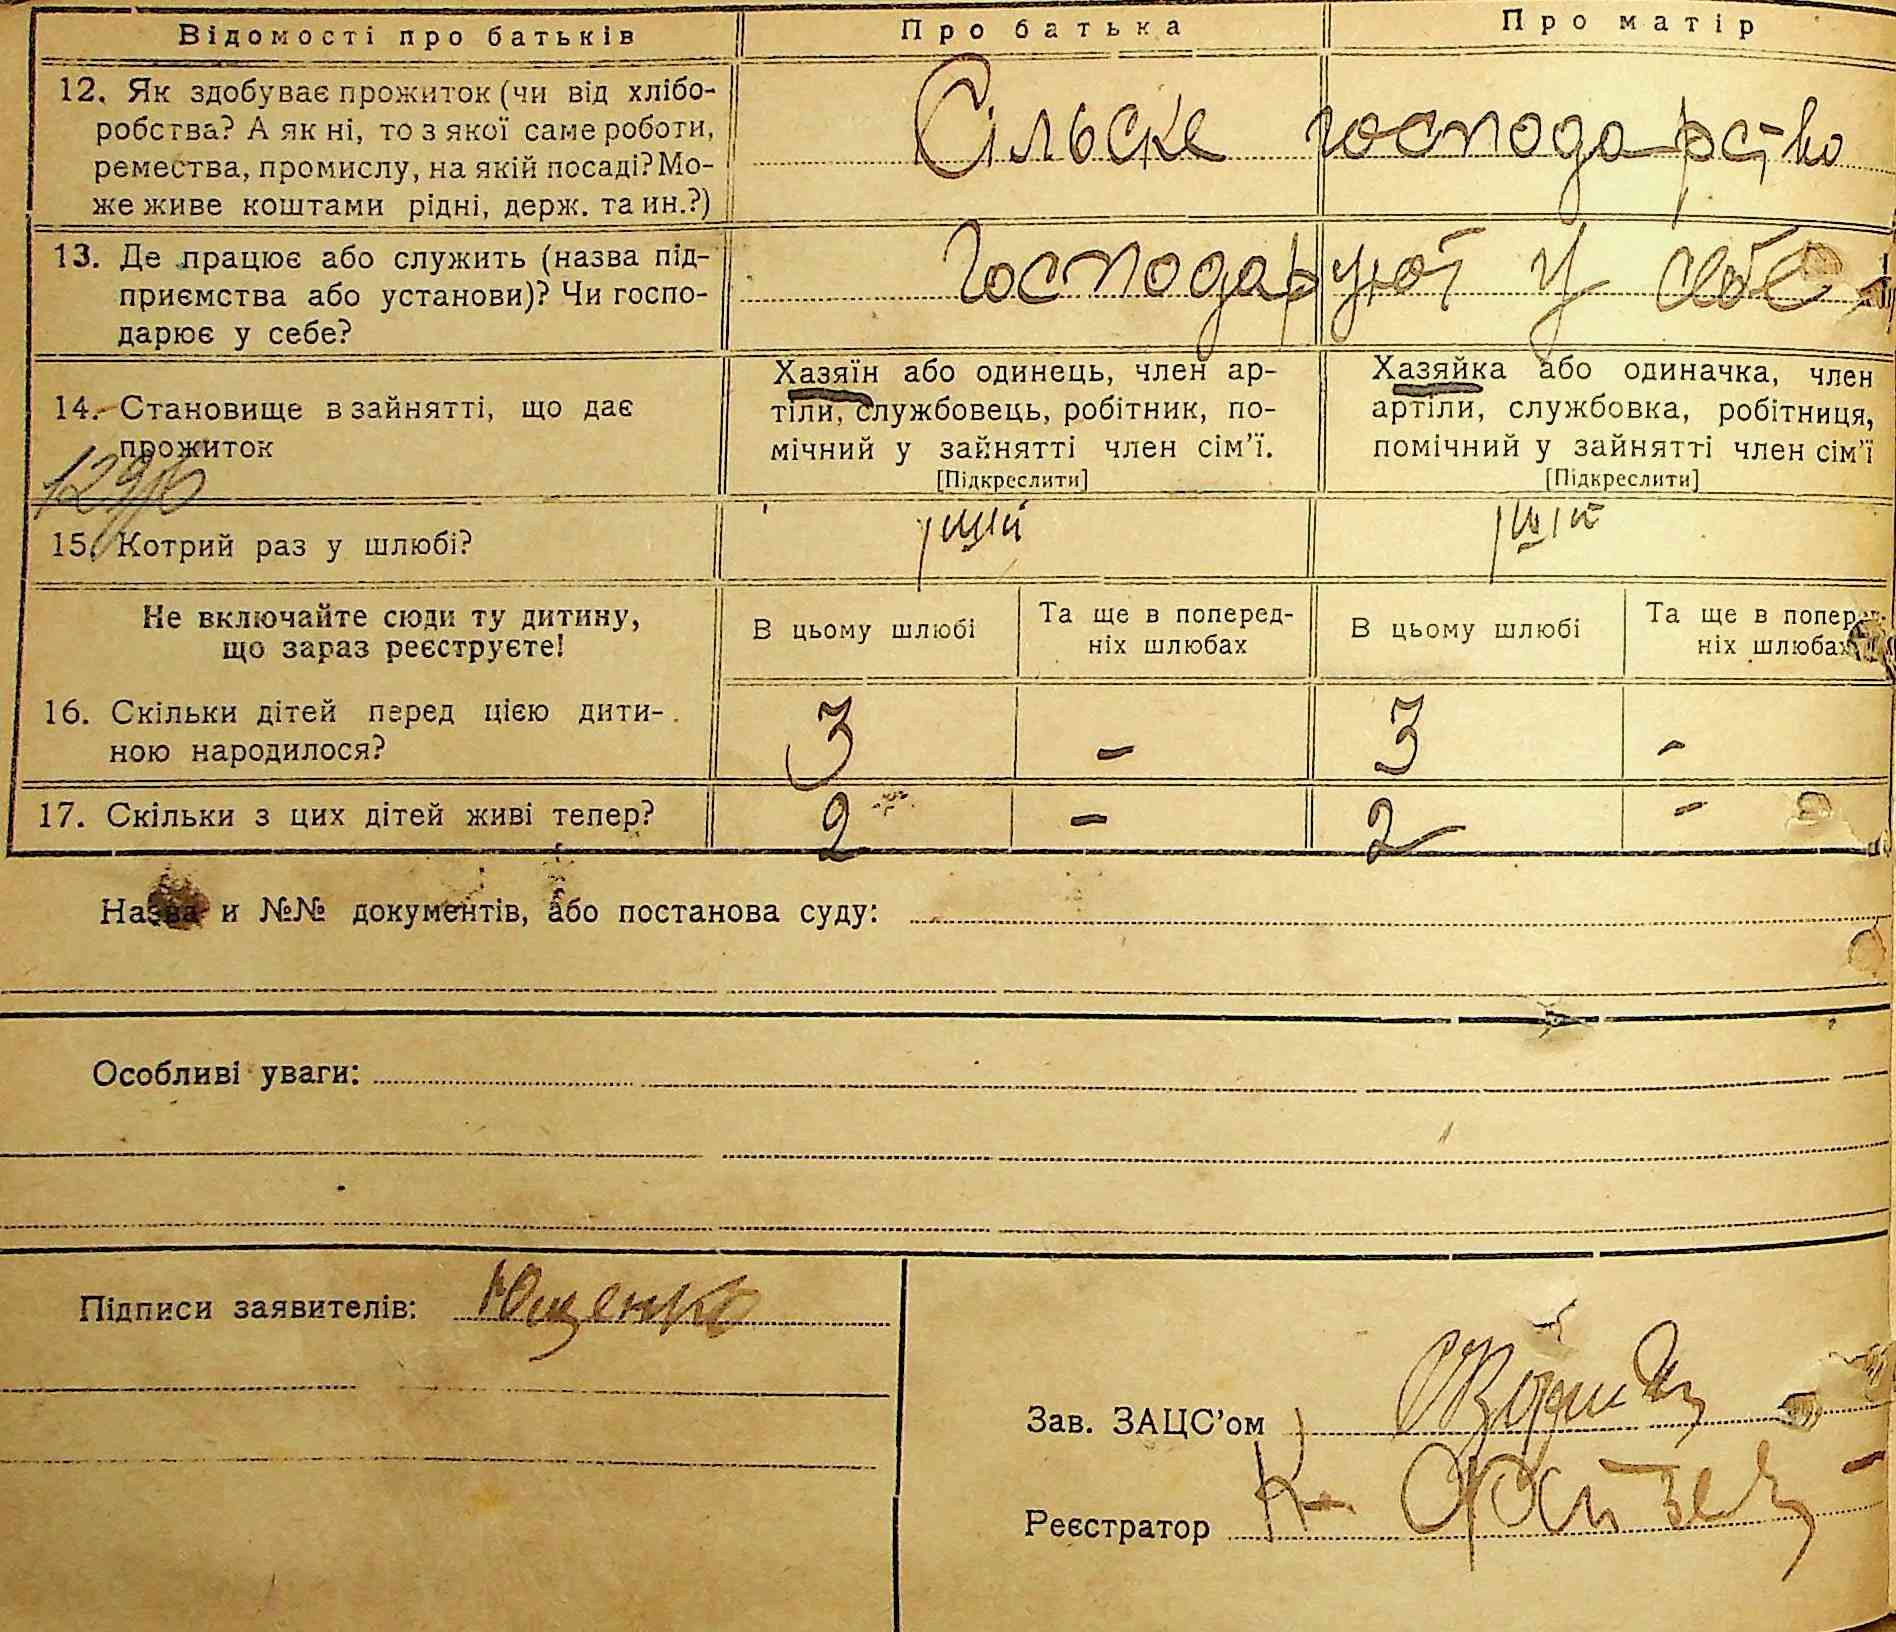 Відомості про батьків
Про батька
Про матір
12. Як здобуває прожиток (чи від хлібо-
робства? А як ні, то з якої саме роботи,
ремества, промислу, на якій посаді? Мо-
же живе коштами рідні, держ. та ин.?)
Сільске господарство
13. Де працює або служить (назва під-
приємства або установи)? Чи госпо-
дарює у себе?
Господарюют у себе
14. Становище в зайнятті, що дає
прожиток
Хазяїн або одинець, член ар-
тіли, службовець, робітник, по-
мічний у зайнятті член сім’ї.
[Підкреслити]
Хазяйка або одиначка, член
артіли, службовка, робітниця,
помічний у зайнятті член сім’ї
[Підкреслити]
15. Котрий раз у шлюбі?
Не включайте сюди ту дитину,
що зараз реєструєте!
В цьому шлюбі
Та ще в поперед-
ніх шлюбах
В цьому шлюбі
Та ще в поперед-
ніх шлюбах
16. Скільки дітей перед цією дити-
ною народилося?
3 - 3 -
17. Скільки з цих дітей живі тепер?
2 - 2 -
Назва и №№ документів, або постанова суду:
Особливі уваги:
Підписи заявителів: Ющенко
Зав. ЗАЦС’ом
Реєстратор